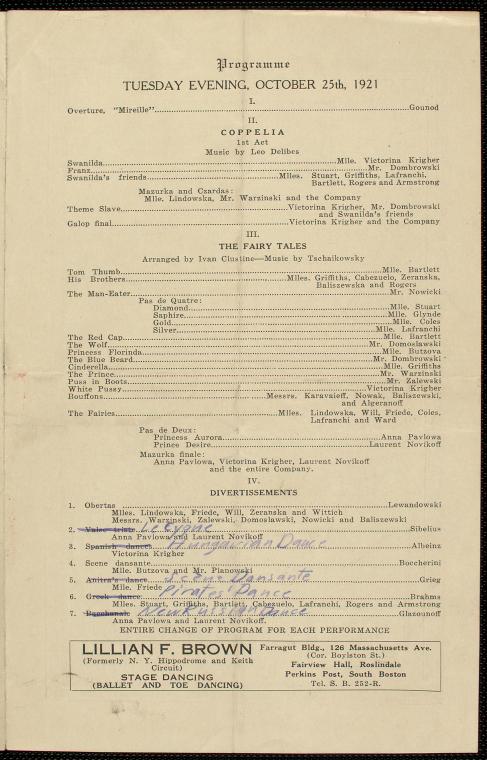 Programme
TUESDAY EVENING, OCTOBER 25th, 1921
I.
Overture, "Mireille"....Gounod
II.
COPPELIA
1st Act
Music by Leo Delibes
Swanilda....Mlle. Victorina Krigher
Franz....Mr. Dombrowski
Swanilda's friends....Mlles. Stuart, Griffiths, Lafranchi,
Bartlett, Rogers and Armstrong
Mazurka and Czardas:
Mlle. Lindowska, Mr. Warzinski and the Company
Theme Slave....Victorina Krigher, Mr. Dombrowski
and Swanilda's friends
Galop final....Victorina Krigher and the Company
III.
THE FAIRY TALES
Arranged by Ivan Clustine—Music by Tschaikowsky
Tom Thumb....Mlle. Bartlett
His Brothers....Mlles. Griffiths, Cabezuelo, Zeranska,
Baliszewska and Rogers
The Man-Eater....Mr. Nowicki
Pas de Quatre:
Diamond....Mlle. Stuart
Saphire....Mlle. Glynde
Gold....Mlle. Coles
Silver....Mlle. Lafranchi
The Red Cap....Mlle. Bartlett
The Wolf....Mr. Domoslawski
Princess Florinda....Mlle. Butzova
The Blue Beard....Mr. Dombrowski
Cinderella....Mlle. Griffiths
The Prince....Mr. Warzinski
Puss in Boots....Mr. Zalewski
White Pussy....Victorina Krigher
Bouffons....Messrs. Karavaieff, Nowak, Baliszewski,
and Algeranoff
The Fairies....Mlles. Lindowska, Will, Friede, Coles,
Lafranchi and Ward
Pas de Deux:
Princess Aurora....Anna Pavlowa
Prince Desire....Laurent Novikoff
Mazurka finale:
Anna Pavlowa, Victorina Krigher, Laurent Novikoff
and the entire Company.
IV.
DIVERTISSEMENTS
1. Obertas....Lewandowski
Mlles. Lindowska, Friede, Will, Zeranska and Wittich
Messrs. Warzinski, Zalewski, Domoslawski, Nowicki and Baliszewski
2. Valse triste Le Cygne Sibelius
Anna Pavlowa and Laurent Novikoff
3. Spanish dance Hungarian Dance Albeinz
Victorina Krigher
4. Scene dansante....Boccherini
Mlle. Butzova and Mr. Pianowski
5. Anitra's dance Scene Dansante Grieg
Mlle. Friede
6. Greek dance Pirates' Dance Brahms
Mlles. Stuart, Griffiths, Bartlett, Cabezuelo, Lafranchi, Rogers and Armstrong
7. Bacchanale New Russian Dance Glazounoff
Anna Pavlowa and Laurent Novikoff.
ENTIRE CHANGE OF PROGRAM FOR EACH PERFORMANCE
LILLIAN F. BROWN
(Formerly N. Y. Hippodrome and Keith
Circuit)
STAGE DANCING
(BALLET AND TOE DANCING)
Farragut Bldg., 126 Massachusetts Ave.
(Cor. Boylston St.)
Fairview Hall, Roslindale
Perkins Post, South Boston
Tel. S. B. 252-R.